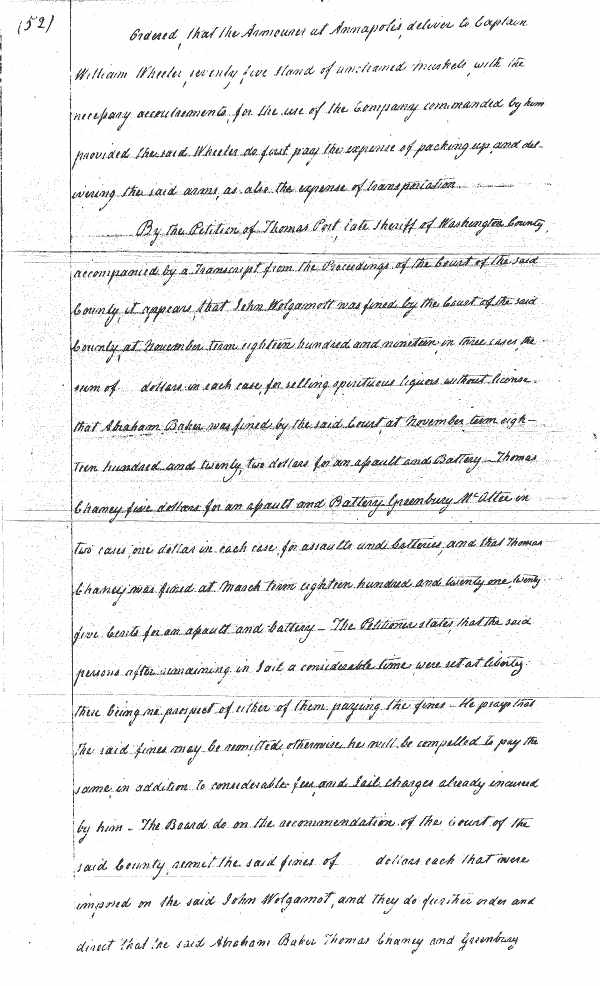 (52)
Ordered, that the Armourer at Annapolis, deliver to Captain
William Wheeler, seventy five stand of uncleaned muskets, with the
necessary accoutrements, for the use of the Company commanded by him
provided the said Wheeler do first pay the expense of packing up, and del-
ivering the said arms, as also the expense of transportation
By the Petition of Thomas Post, late Sheriff of Washington County,
accompanied by a Transcript from the Proceedings of the Court of the said
County, it appears, that John Wolgamott was fined by the Court of the said
County, at November term eighteen hundred and nineteen, in three cases, the
sum of dollars in each case, for selling spirituous liquors without license.
that Abraham Baker was fined by the said Court, at November term eigh-
teen hundred and twenty, two dollars for an assault and Battery - Thomas
Chaney five dollars for an assault and Battery, Greenbury McAtter in
two cases, one dollar in each case, for assaults and batteries, and that Thomas
Chaney was fined at March term eighteen hundred and twenty one, twenty
five Cents for an assault and battery - The Petitioner states, that the said
persons after remaining in Jail a considerable time, were set at liberty.
there being no prospect of either of them paying the fines - He prays that
the said fines may be remitted, otherwise he will be compelled to pay the
same, in addition to considerable fees and Jail Charges already incured
by him - The Board do on the recommendation of the Court of the
said County, remit the said fines of dollars each that were
imposed on the said John Wolgamot, and they do further order and
direct that the said Abraham Baker Thomas Chaney and Greenbury